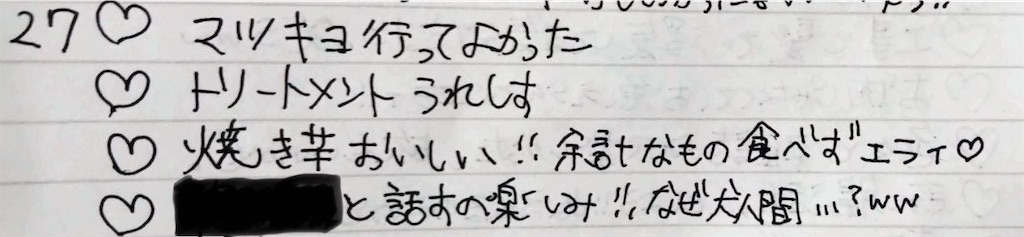 27♡ マツキヨ行ってよかった
♡ トリートメントうれしす
♡ 焼き芋おいしい!! 余計なもの食べずエライ♡
♡ と話すの楽しみ!! なぜ犬人間...?ww